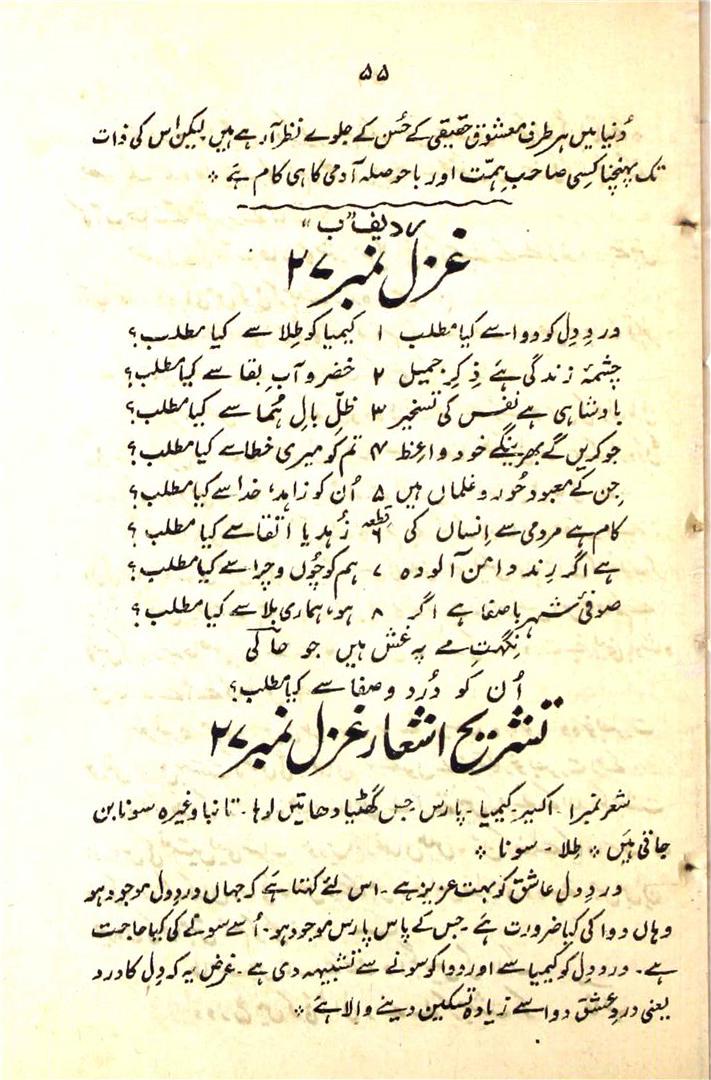 ۵۵
دُنیا میں ہر طرف معشوقِ حقیقی کے حُسن کے جلوے نظر آ رہے ہیں لیکن اس کی ذات
تک پہنچنا کسی صاحبِ ہمّت اور باحوصلہ آدمی کا ہی کام ہے ÷
ردیف "ب"
غزل نمبر ۲۷
دردِ دِل کو دوا سے کیا مطلب ۱ کیمیا کو طِلا سے کیا مطلب؟
چشمۂ زندگی ہے ذِکرِ جمیل ۲ خضر و آبِ بقا سے کیا مطلب؟
بادشاہی ہے نفس کی تسخیر ۳ ظلِّ بالِ ہُما سے کیا مطلب؟
جو کریں گے بھرینگے خود واعظ ۴ تم کو میری خطا سے کیا مطلب؟
جِن کے معبود حُور و غلماں ہیں ۵ اُن کو زاہد، خدا سے کیا مطلب؟
کام ہے مردمی سے اِنساں کی قطعہ ۶ زُہد یا اتقا سے کیا مطلب؟
ہے اگر رِند دامن آلودہ ۷ ہم کو چُوں و چرا سے کیا مطلب؟
صوفیٔ شہر باصفا ہے اگر ۸ ہو، ہماری بلا سے کیا مطلب؟
نِگہتِ مے پہ غش ہیں جو حاؔلی
اُن کو دُرد و صفا سے کیا مطلب؟
تشریح اشعار غزل نمبر ۲۷
شعر نمبر ۱۔ اکسیر۔ کیمیا۔ پارس۔ جس گھٹیا دھاتیں لوہا۔ تانبا وغیرہ سونا بن
جاتی ہیں ÷ طِلا۔ سونا ÷
دردِ دل عاشق کو بہت عزیز ہے۔ اس لئے کہتا ہے کہ جہاں دردِ دل موجود ہو
وہاں دوا کی کیا ضرورت ہے۔ جس کے پاس پارس موجود ہو۔ اُسے سونے کی کیا حاجت
ہے۔ دردِ دل کو کیمیا سے اور دوا کو سونے سے تشبیہہ دی ہے۔ غرض یہ کہ دِل کا درد
یعنی دردِ عشق دوا سے زیادہ تسکین دینے والا ہے ÷